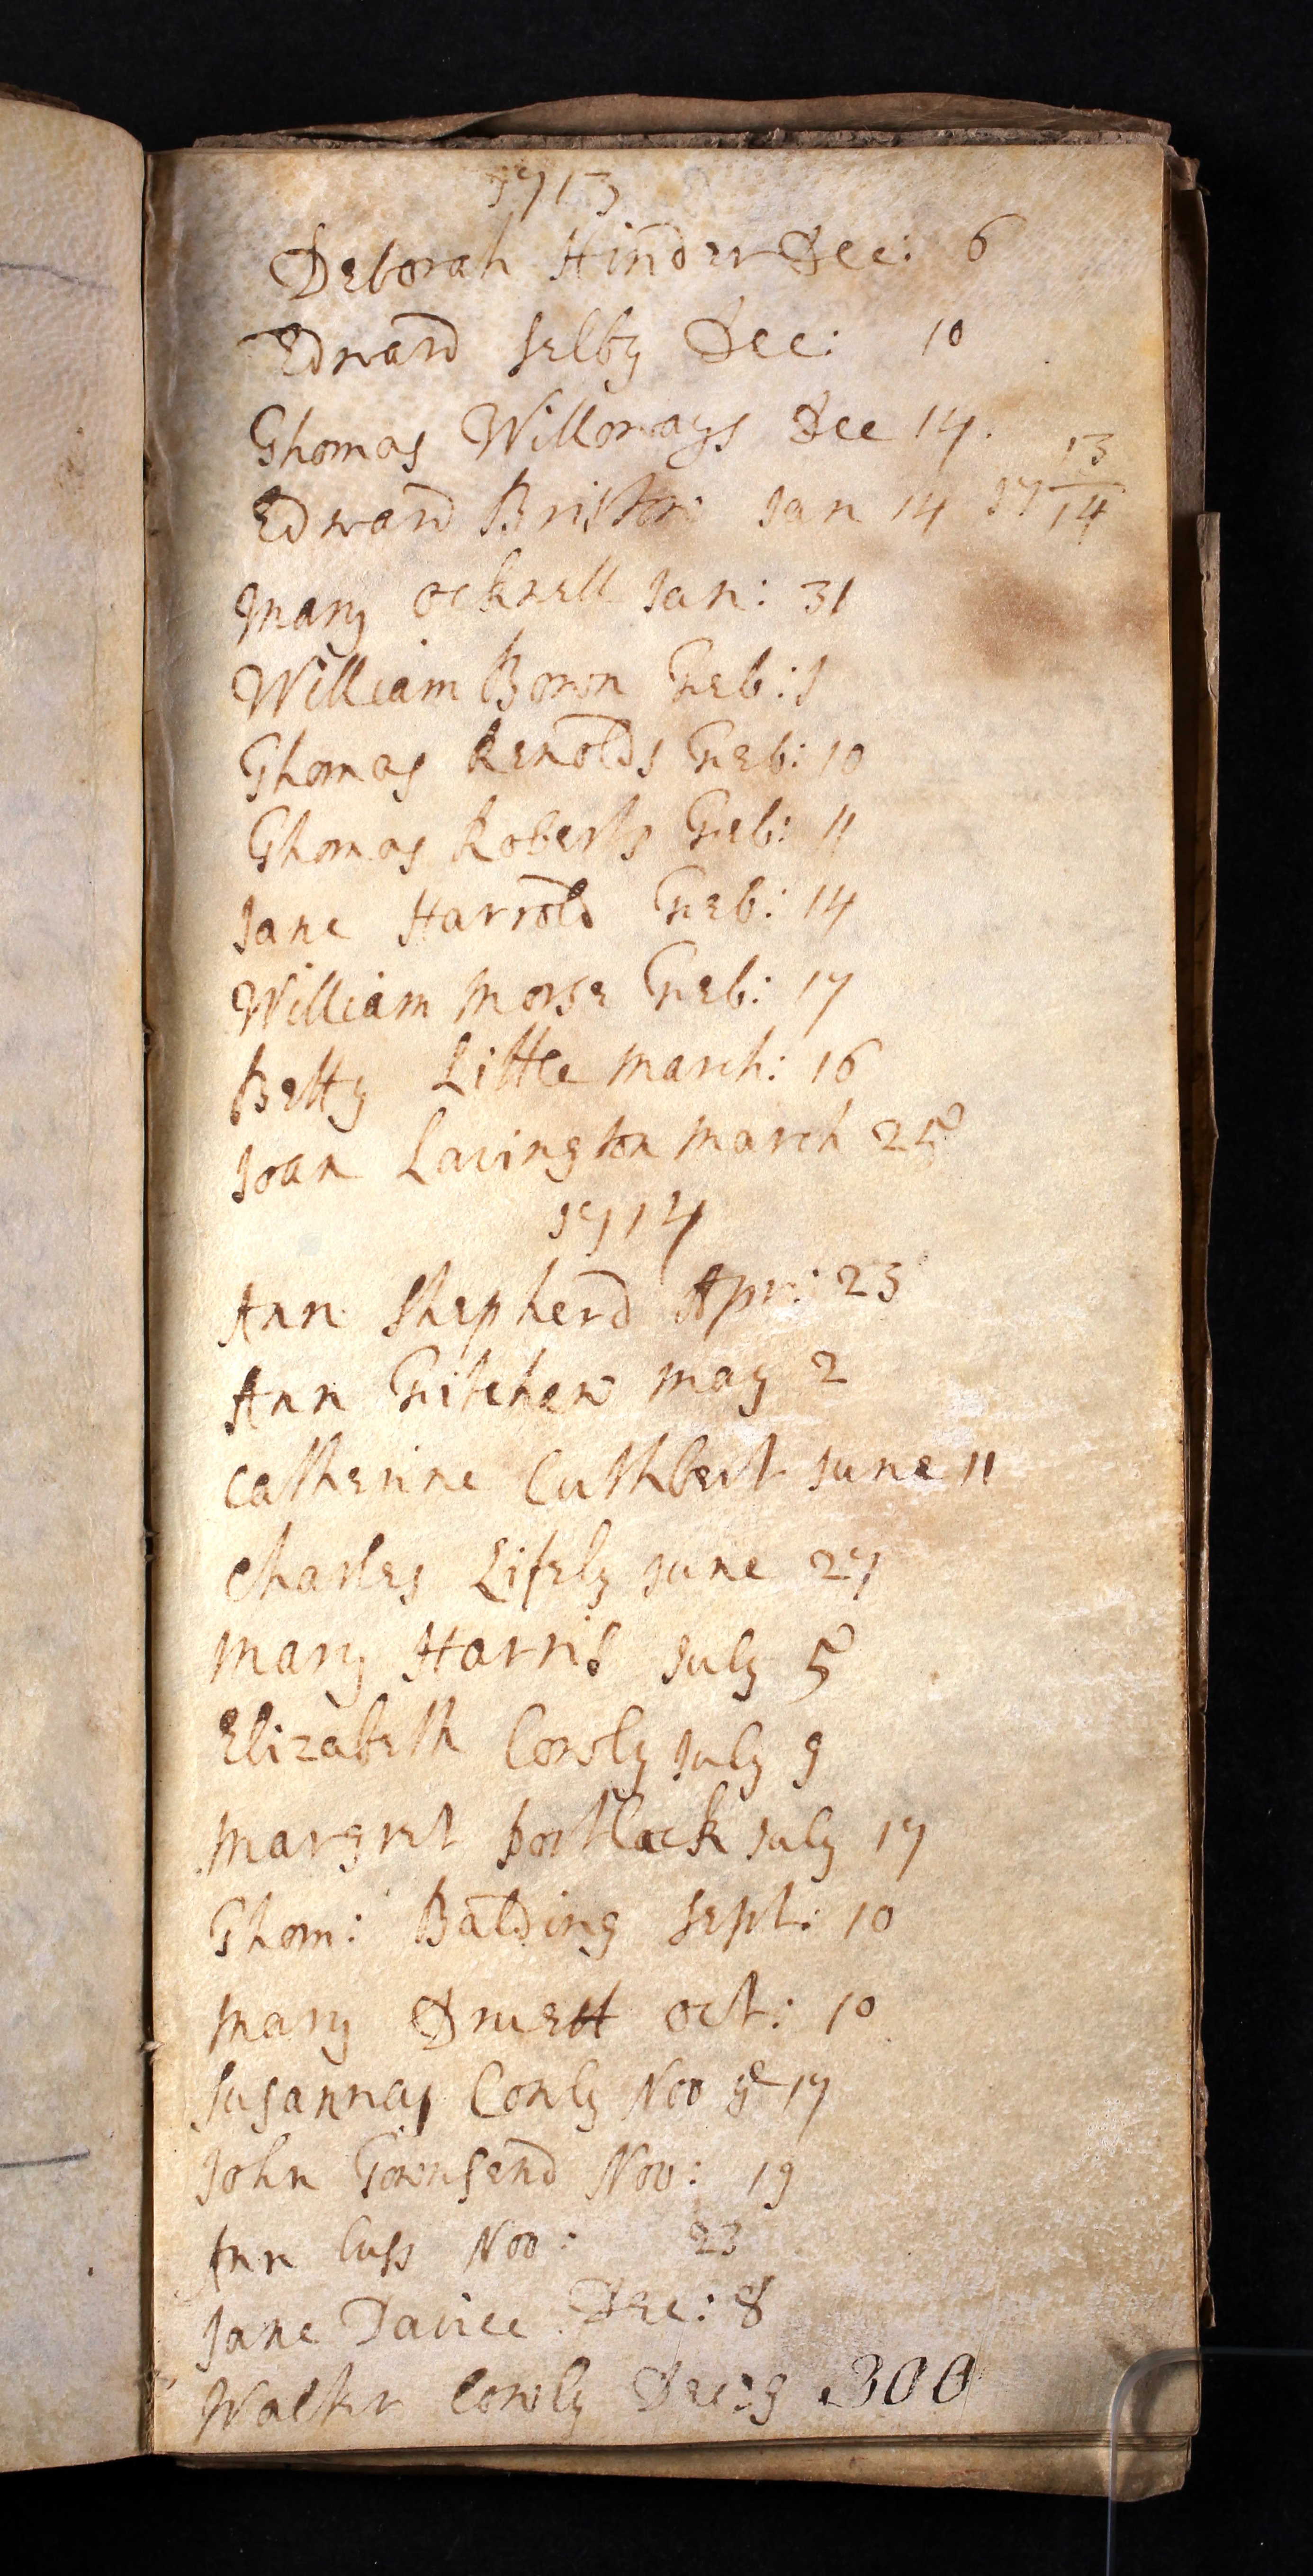 1713
Deborah Hinder Dec: 6
Edward Selby Dec: 10
Thomas Willoways Dec 14.
Edward Bristow Jan 14 17 13/14
Mary Ocknell Jan: 31
William Bown Feb: 1
Thomas Renolds Feb: 10
Thomas Roberts Feb: 11
Jane Harrold Feb: 14
William Morse Feb: 17
Betty Little March: 16
Joan Lavington March 25
1714
Ann Shepherd Apr: 23
Ann Fitchew May 2
Catherine Cuthbert June 11
Charles Lifely June 27
Mary Harris July 5
Elizabeth Cowly July 9
Margret Portlock July 17
Thom: Balding Sept: 10
Mary Druett Oct: 10
Susannah Cowly Nov ye 17
John Townsend Nov: 19
Ann Cuss Nov: 23
Jane Davice Dec: 8
Walter Cowly Dec: 9 300